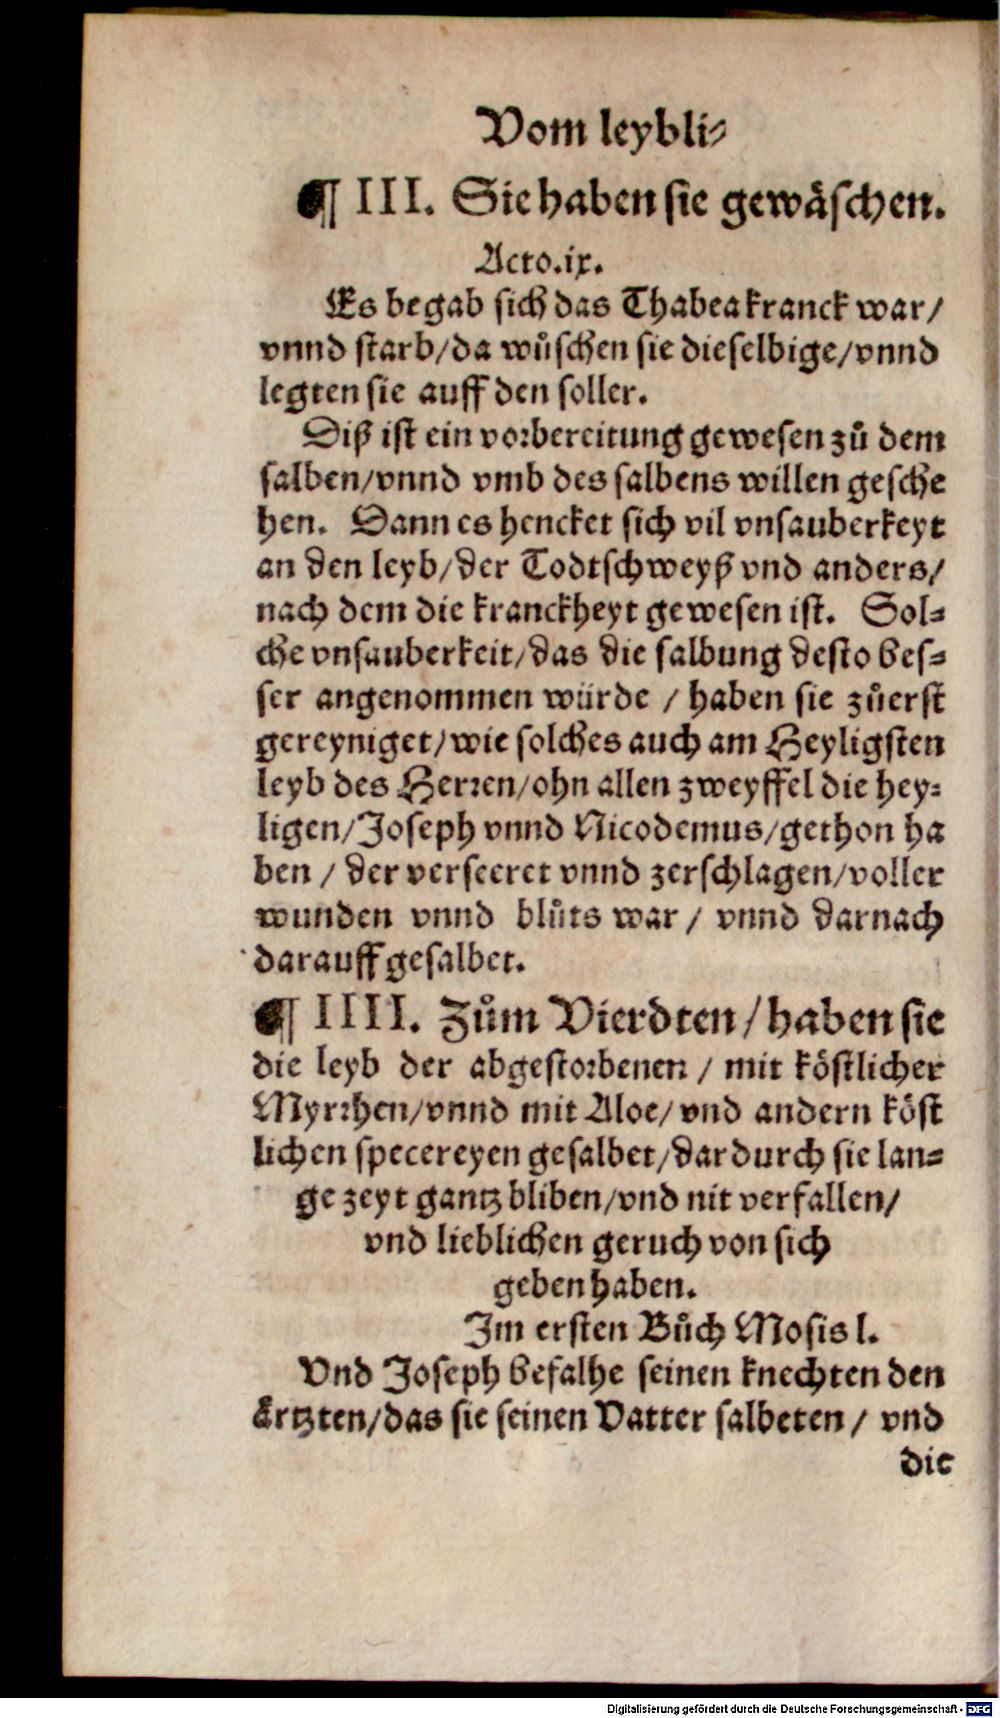 Vom leybli⸗
¶ III. Sie haben sie gewäschen.
Acto.ix.
Es begab sich das Thabea kranck war/
vnnd starb/da wůschen sie dieselbige/vnnd
legten sie auff den soller.
Diß ist ein vorbereitung gewesen zů dem
salben/vnnd vmb des salbens willen gesche
hen. Dann es hencket sich vil vnsauberkeyt
an den leyb/der Todtschweyß vnd anders/
nach dem die kranckheyt gewesen ist. Sol⸗
che vnsauberkeit/das die salbung desto bes⸗
ser angenommen würde / haben sie zůerst
gereyniget/wie solches auch am Heyligsten
leyb des Herren/ohn allen zweyffel die hey⸗
ligen/Joseph vnnd Nicodemus/gethon ha
ben / der verseeret vnnd zerschlagen/voller
wunden vnnd blůts war / vnnd darnach
darauff gesalbet.
¶ IIII. Zům Vierdten/haben sie
die leyb der abgestorbenen / mit köstlicher
Myrrhen/vnnd mit Aloe/vnd andern köst
lichen specereyen gesalbet/dardurch sie lan⸗
ge zeyt gantz bliben/vnd nit verfallen/
vnd lieblichen geruch von sich
geben haben.
Im ersten Bůch Mosis l.
Vnd Joseph befalhe seinen knechten den
ärtzten/das sie seinen Vatter salbeten / vnd
die
Digitalisierung gefördert durch die Deutsche Forschungsgemeinschaft - DFG